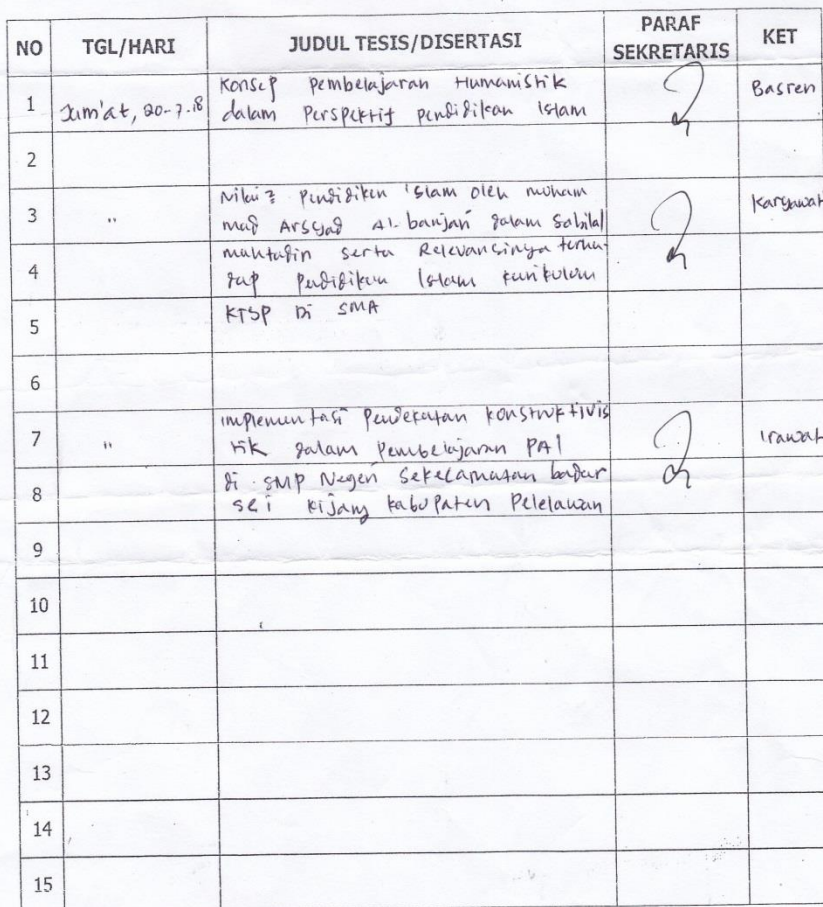 NO TGL/HARI JUDUL TESIS/DISERTASI PARAF SEKRETARIS KET
1 Jum'at, 20-7-18 Konsep Pembelajaran Humanistik Basren
dalam Perspektif pendidikan Islam
2
3 " Nilai2 pendidikan islam oleh muham
mad Arsyad Al-banjari dalam Sabilal
4 muhtadin serta Relevansinya terha-
dap pendidikan Islam kurikulum
5 KTSP Di SMA
6
7 " implementasi pendekatan konstruktivis
tik dalam Pembelajaran PAI
8 di SMP Negeri Sekecamatan
sei kijang kabupaten Pelelawan
9
10
11
12
13
14
15